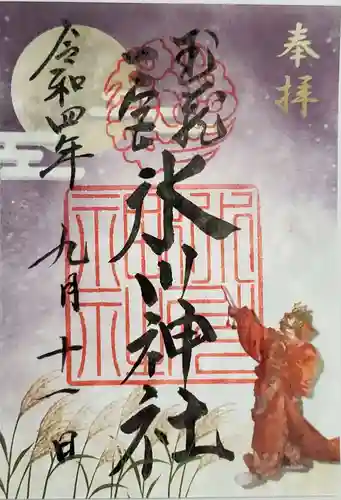 奉拝
武蔵
氷川神社
令和四年九月十一日